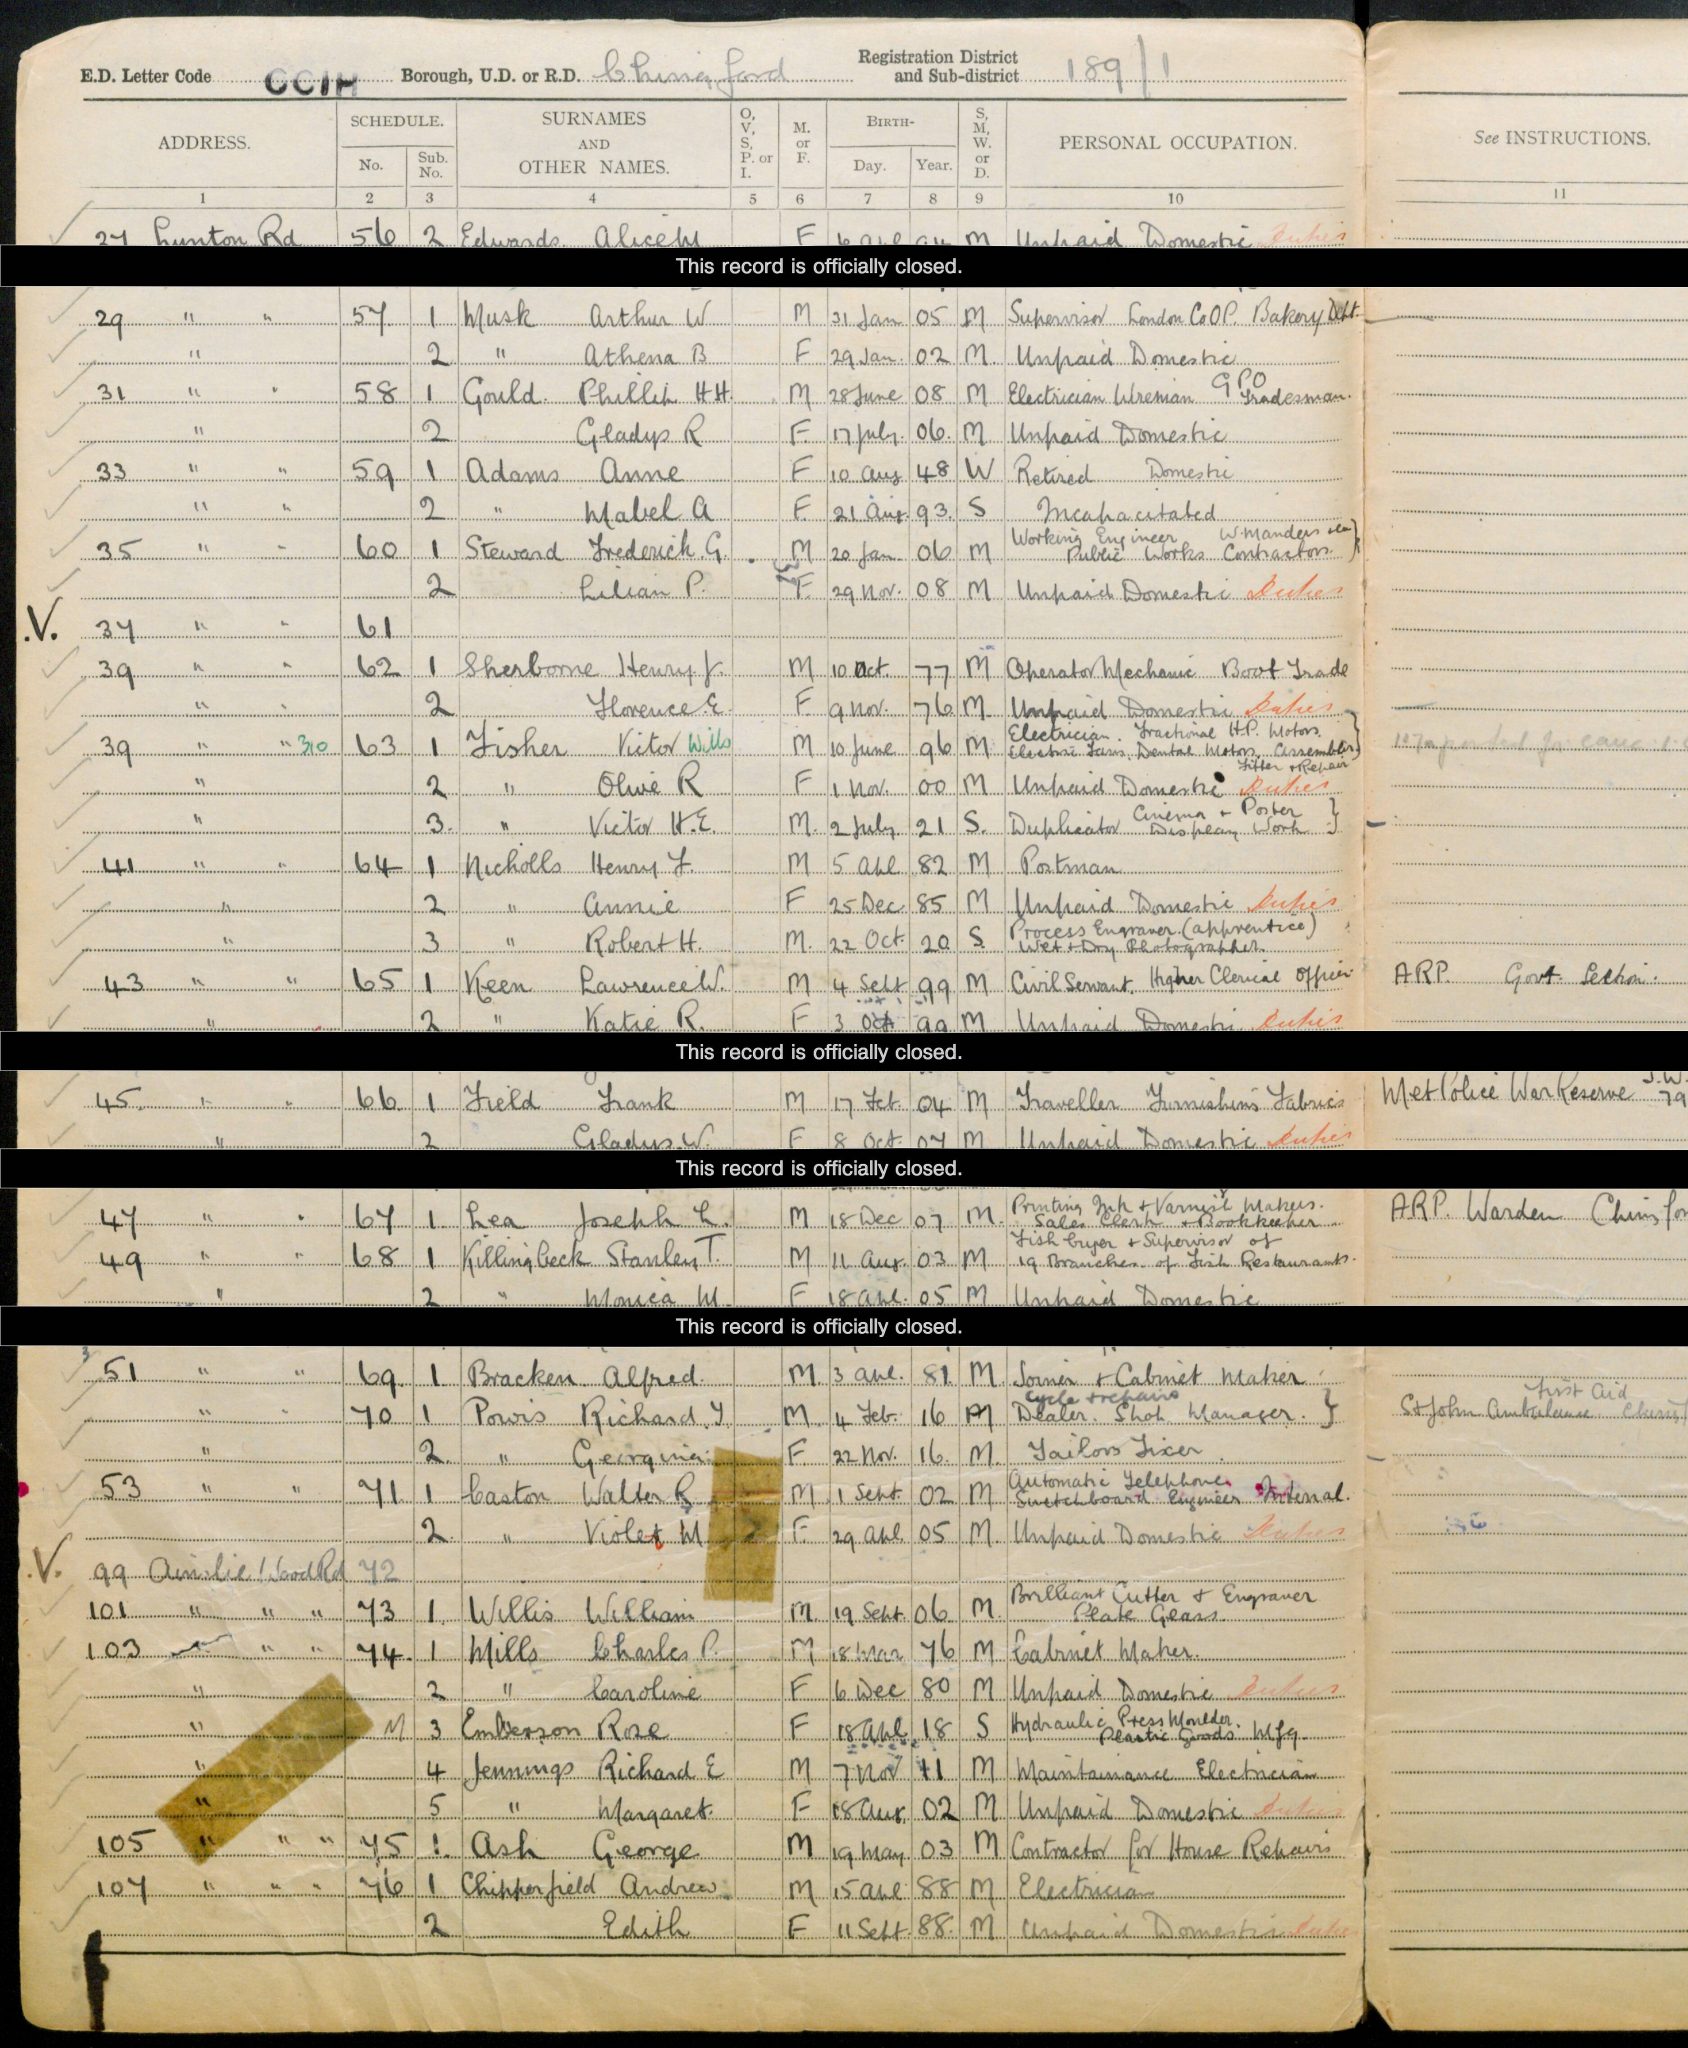 E.D. Letter Code CCIH Borough, U.D. or R.D. Chingford Registration District and Sub-district 189/1
ADDRESS. SCHEDULE. No. Sub. No. SURNAMES AND OTHER NAMES. O, V, S, P. or I. M. or F. BIRTH- Day. Year. S, M, W. or D. PERSONAL OCCUPATION. See INSTRUCTIONS.
1 2 3 4 5 6 7 8 9 10 11
27 Lunton Rd 56 2 Edwards Alice M F 6 Apl M Unpaid Domestic Duties
This record is officially closed.
29 " " 57 1 Musk Arthur W M 31 Jan 05 M Supervisor London CoOP. Bakery Dept.
" 2 " Athena B F 29 Jan. 02 M Unpaid Domestic
31 " " 58 1 Gould Phillip H H. M 28 June 08 M Electrician Wireman GPO Tradesman.
" 2 Gladys R F 17 July 06 M Unpaid Domestic
33 " " 59 1 Adams Anne F 10 Aug 48 W Retired Domestic
" " 2 " Mabel A F 21 Aug. 93 S Incapacitated
35 " " 60 1 Steward Frederick. G. M 20 Jan 06 M Working Engineer W. Manders Public Works Contractors. }
2 Lilian P. F 29 Nov. 08 M Unpaid Domestic Duties
.V. 37 " " 61
39 " " 62 1 Sherborne Henry J. M 10 Oct. 77 M Operator Mechanic Boot Trade
" " 2 Florence. E. F 9 Nov. 76 M. Unpaid Domestic Duties
39 " " 310 63 1 Fisher Victor Wills M 10 June 96 M Electrician. Fractional H.P. Motors. Electric Fans, Dental Motors, Assembler, Fitter & Repair }
" 2 " Olive R F 1 Nov. 00 M Unpaid Domestic Duties
" 3. " Victor H.E. M. 2 July 21 S. Duplicator Cinema & Poster Display Work }
41 " " 64 1 Nicholls Henry F. M 5 Apl 82 M Postman
" 2 " Annie F 25 Dec 85 M Unpaid Domestic Duties
" 3 " Robert H. M. 22 Oct. 20 S Process Engraver. (apprentice) Wet & Dry Photographer.
43 " " 65 1 Keen Lawrence W. M 4 Sept 99 M Civil Servant. Higher Clerical Officer ARP. Govt. Section.
" 2 " Katie R. F 3 Oct 99 M Unpaid Domestic Duties
This record is officially closed.
45. " " 66. 1 Field Frank M 17 04 M Traveller Furnishing Fabrics Met Police War Reserve
" 2 Gladys. W. F 8 Oct 07 M Unpaid Domestic Duties
This record is officially closed.
47 " " 67 1. Lea Joseph L. M 18 Dec 07 M. Printing Ink & Varnish Makers. Sales Clerk & Bookkeeper ARP. Warden
49 " " 68 1 Killingbeck Stanley T. M 11 Aug. 03 M Fish buyer & Supervisor of 19 Branches of Fish Restaurants.
" 2 " Monica M. F 18 Apl. 05 M Unpaid Domestic
This record is officially closed.
51 " " 69 1 Bracken Alfred. M 3 Apl. 81 M Joiner & Cabinet Maker
" " 70 1 Powis Richard. J. M. 4 Feb. 16 M Cycle & repairs Dealer. Shop Manager. } St John Ambulance First Aid
" 2. " Georgina. F 22 Nov. 16. M. Tailors Fixer
53 " " 71 1 Caston Walter R M 1 Sept. 02 M Automatic Telephone Switchboard Engineer Internal.
2. " Violet M F. 29 Apl. 05 M. Unpaid Domestic Duties
.V. 99 Ainslie Wood Rd 72
101 " " " 73 1. Willis William M. 19 Sept 06 M. Brilliant Cutter & Engraver Plate Glass
103 " " 74. 1 Mills Charles P. M 18 Mar 76 M Cabinet Maker.
" 2 " Caroline F 6 Dec 80 M Unpaid Domestic Duties
" M 3 Emberson Rose F 18 Apl 18 S Hydraulic Press Moulder. Plastic Goods Mfg.
" 4 Jennings Richard E M 7 Nov 11 M Maintainance Electrician
" 5 " Margaret. F 18 Aug. 02 M Unpaid Domestic Duties
105 " " " 75 1. Ash George M 19 May 03 M Contractor for House Repairs
107 " " " 76 1 Chipperfield Andrew M 15 Apl 88 M Electrician
2 Edith F 11 Sept 88. M Unpaid Domestic Duties